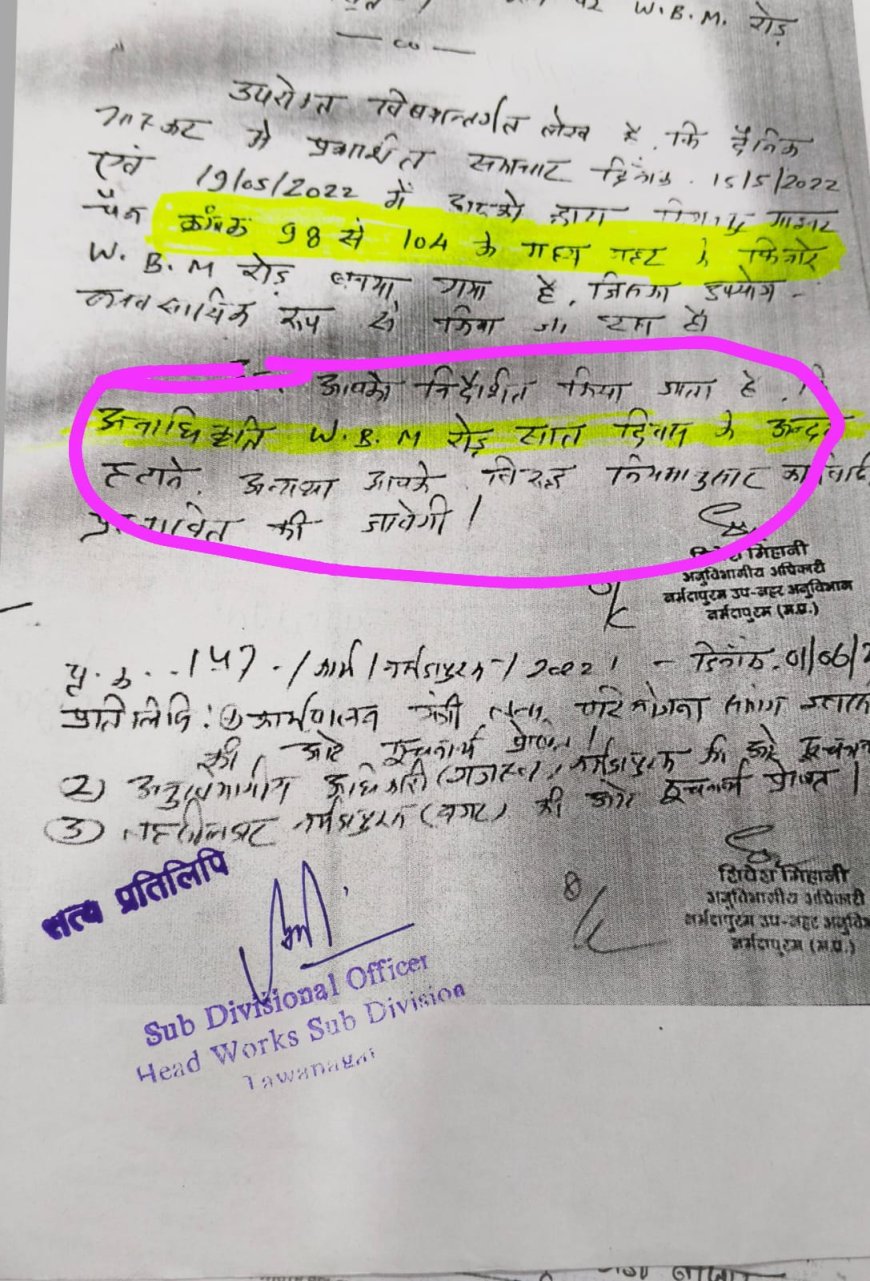 पर W.B.M. रोड़
उपरोक्त विषयान्तर्गत लेख है, कि दैनिक
में प्रकाशित समाचार दिनांक 15/5/2022
एवं 19/05/2022 में आपके द्वारा माइनर
चैन क्रमांक 98 से 104 के मध्य नहर के किनारे
W.B.M रोड़ बनाया गया है, जिसका उपयोग -
व्यवसायिक रूप से किया जा रहा है।
आपको निर्देशित किया जाता है, कि
अनाधिकृत W.B.M रोड़ सात दिवस के अन्दर
हटावे, अन्यथा आपके विरूद्ध नियमानुसार कार्यवाही
प्रस्तावित की जावेगी।
अनुविभागीय अधिकारी
नर्मदापुरम उप-नहर अनुविभाग
नर्मदापुरम (म.प्र.)
पृ. क्र. 147 / कार्य / नर्मदापुरम / 2022 / - दिनांक. 01/06/2
प्रतिलिपि: ① कार्यपालन यंत्री तवा परियोजना संभाग
की ओर सूचनार्थ प्रेषित।
2) अनुविभागीय अधिकारी (राजस्व) नर्मदापुरम की ओर सूचनार्थ प्रेषित।
③ तहसीलदार नर्मदापुरम (नगर) की ओर सूचनार्थ प्रेषित।
सत्य प्रतिलिपि
अनुविभागीय अधिकारी
नर्मदापुरम उप-नहर अनुवि
नर्मदापुरम (म.प्र.)
Sub Divisional Officer
Head Works Sub Division
Tawanagar